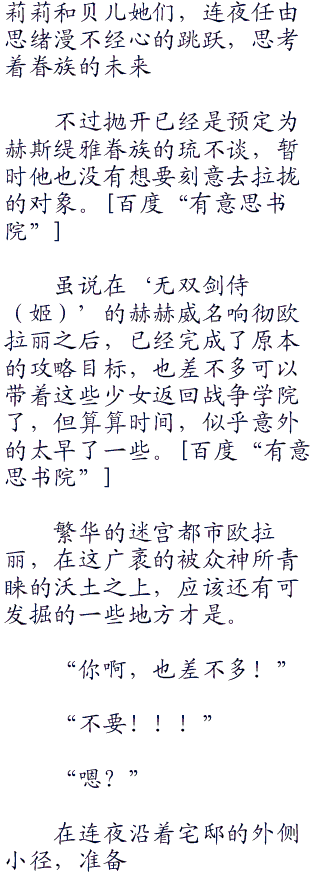 莉莉和贝儿她们，连夜任由
思绪漫不经心的跳跃，思考
着眷族的未来
不过抛开已经是预定为
赫斯缇雅眷族的琉不谈，暂
时他也没有想要刻意去拉拢
的对象。[百度“有意思书
院”]
虽说在‘无双剑侍
（姬）’的赫赫威名响彻欧
拉丽之后，已经完成了原本
的攻略目标，也差不多可以
带着这些少女返回战争学院
了，但算算时间，似乎意外
的太早了一些。[百度“有意
思书院”]
繁华的迷宫都市欧拉
丽，在这广袤的被众神所青
睐的沃土之上，应该还有可
发掘的一些地方才是。
“你啊，也差不多！”
“不要！！！”
“嗯？”
在连夜沿着宅邸的外侧
小径，准备